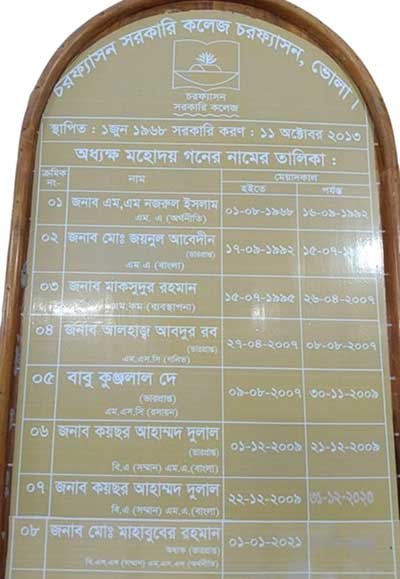 চরফ্যাসন সরকারি কলেজ চরফ্যাসন, ভোলা।
চরফ্যাসন
সরকারি কলেজ
স্থাপিত : ১জুন ১৯৬৮ সরকারি করণ : ১১ অক্টোবর ২০১৩
অধ্যক্ষ মহোদয় গনের নামের তালিকা :
ক্রমিক নং- নাম মেয়াদকাল
হইতে পর্যন্ত
০১ জনাব এম,এম নজরুল ইসলাম ০১-০৮-১৯৬৮ ১৬-০৯-১৯৯২
এম. এ (অর্থনীতি)
০২ জনাব মোঃ জয়নুল আবেদীন ১৭-০৯-১৯৯২ ১৫-০৭-
(ভারপ্রাপ্ত)
এম এ (বাংলা)
০৩ জনাব মাকসুদুর রহমান ১৫-০৭-১৯৯৫ ২৬-০৪-২০০৭
এম.কম (ব্যবস্থাপনা)
০৪ জনাব আলহাজ্ব আবদুর রব ২৭-০৪-২০০৭ ০৮-০৮-২০০৭
(ভারপ্রাপ্ত)
এম.এস.সি (গনিত)
০৫ বাবু কুঞ্জলাল দে ০৯-০৮-২০০৭ ৩০-১১-২০০৯
(ভারপ্রাপ্ত)
এম.এস.সি (রসায়ন)
০৬ জনাব কয়ছর আহাম্মদ দুলাল ০১-১২-২০০৯ ২১-১২-২০০৯
(ভারপ্রাপ্ত)
বি.এ (সম্মান) এম.এ.(বাংলা)
০৭ জনাব কয়ছর আহাম্মদ দুলাল ২২-১২-২০০৯ ৩১-১২-২০২০
বি.এ (সম্মান) এম.এ.(বাংলা)
০৮ জনাব মোঃ মাহাবুবের রহমান ০১-০১-২০২১
অধ্যক্ষ (ভারপ্রাপ্ত)
বি.এস.এস (সম্মান) এম.এস.এস (অর্থনীতি)